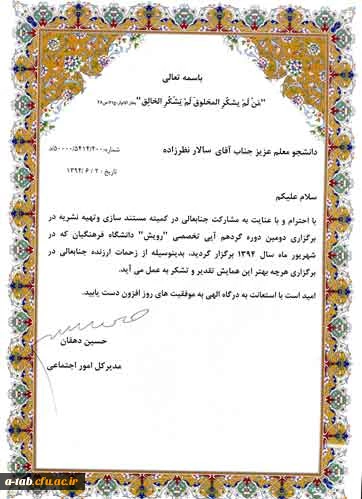 باسمه تعالی
"مَن لَم یشکُر المخلوق لَم یَشکُر الخالِق"
دانشجو معلم عزیز جناب آقای سالار نظرزاده
شماره: ۵۰۰۰۰/۵۴۱۴/۲۰۰/د
تاریخ: ۱۳۹۴/۶/۲۰
سلام علیکم
با احترام و با عنایت به مشارکت جنابعالی در کمیته مستند سازی وتهیه نشریه در
برگزاری دومین دوره گردهم آیی تخصصی "رویش" دانشگاه فرهنگیان که در
شهریور ماه سال ۱۳۹۴ برگزار گردید، بدینوسیله از زحمات ارزنده جنابعالی در
برگزاری هرچه بهتر این همایش تقدیر و تشکر به عمل می آید.
امید است با استعانت به درگاه الهی به موفقیت های روز افزون دست یابید.
حسین دهقان
مدیرکل امور اجتماعی
a-tab.cfu.ac.ir